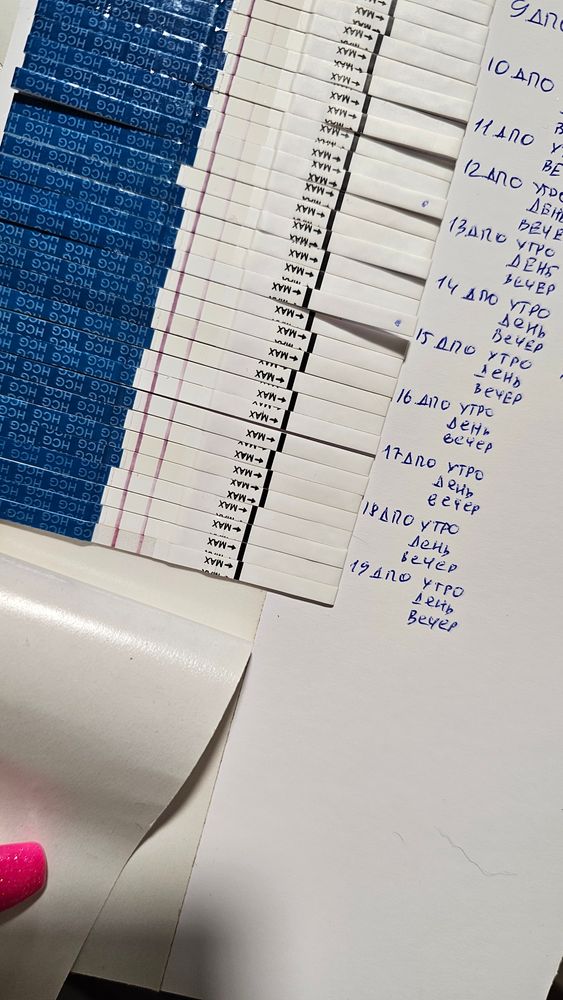 9 ДПО
10 ДПО
11 ДПО
12 ДПО УТРО
ДЕНЬ
ВЕЧЕР
13 ДПО УТРО
ДЕНЬ
ВЕЧЕР
14 ДПО УТРО
ДЕНЬ
ВЕЧЕР
15 ДПО УТРО
ДЕНЬ
ВЕЧЕР
16 ДПО УТРО
ДЕНЬ
ВЕЧЕР
17 ДПО УТРО
ДЕНЬ
ВЕЧЕР
18 ДПО УТРО
ДЕНЬ
ВЕЧЕР
19 ДПО УТРО
ДЕНЬ
ВЕЧЕР
HCG HCG HCG
MAX